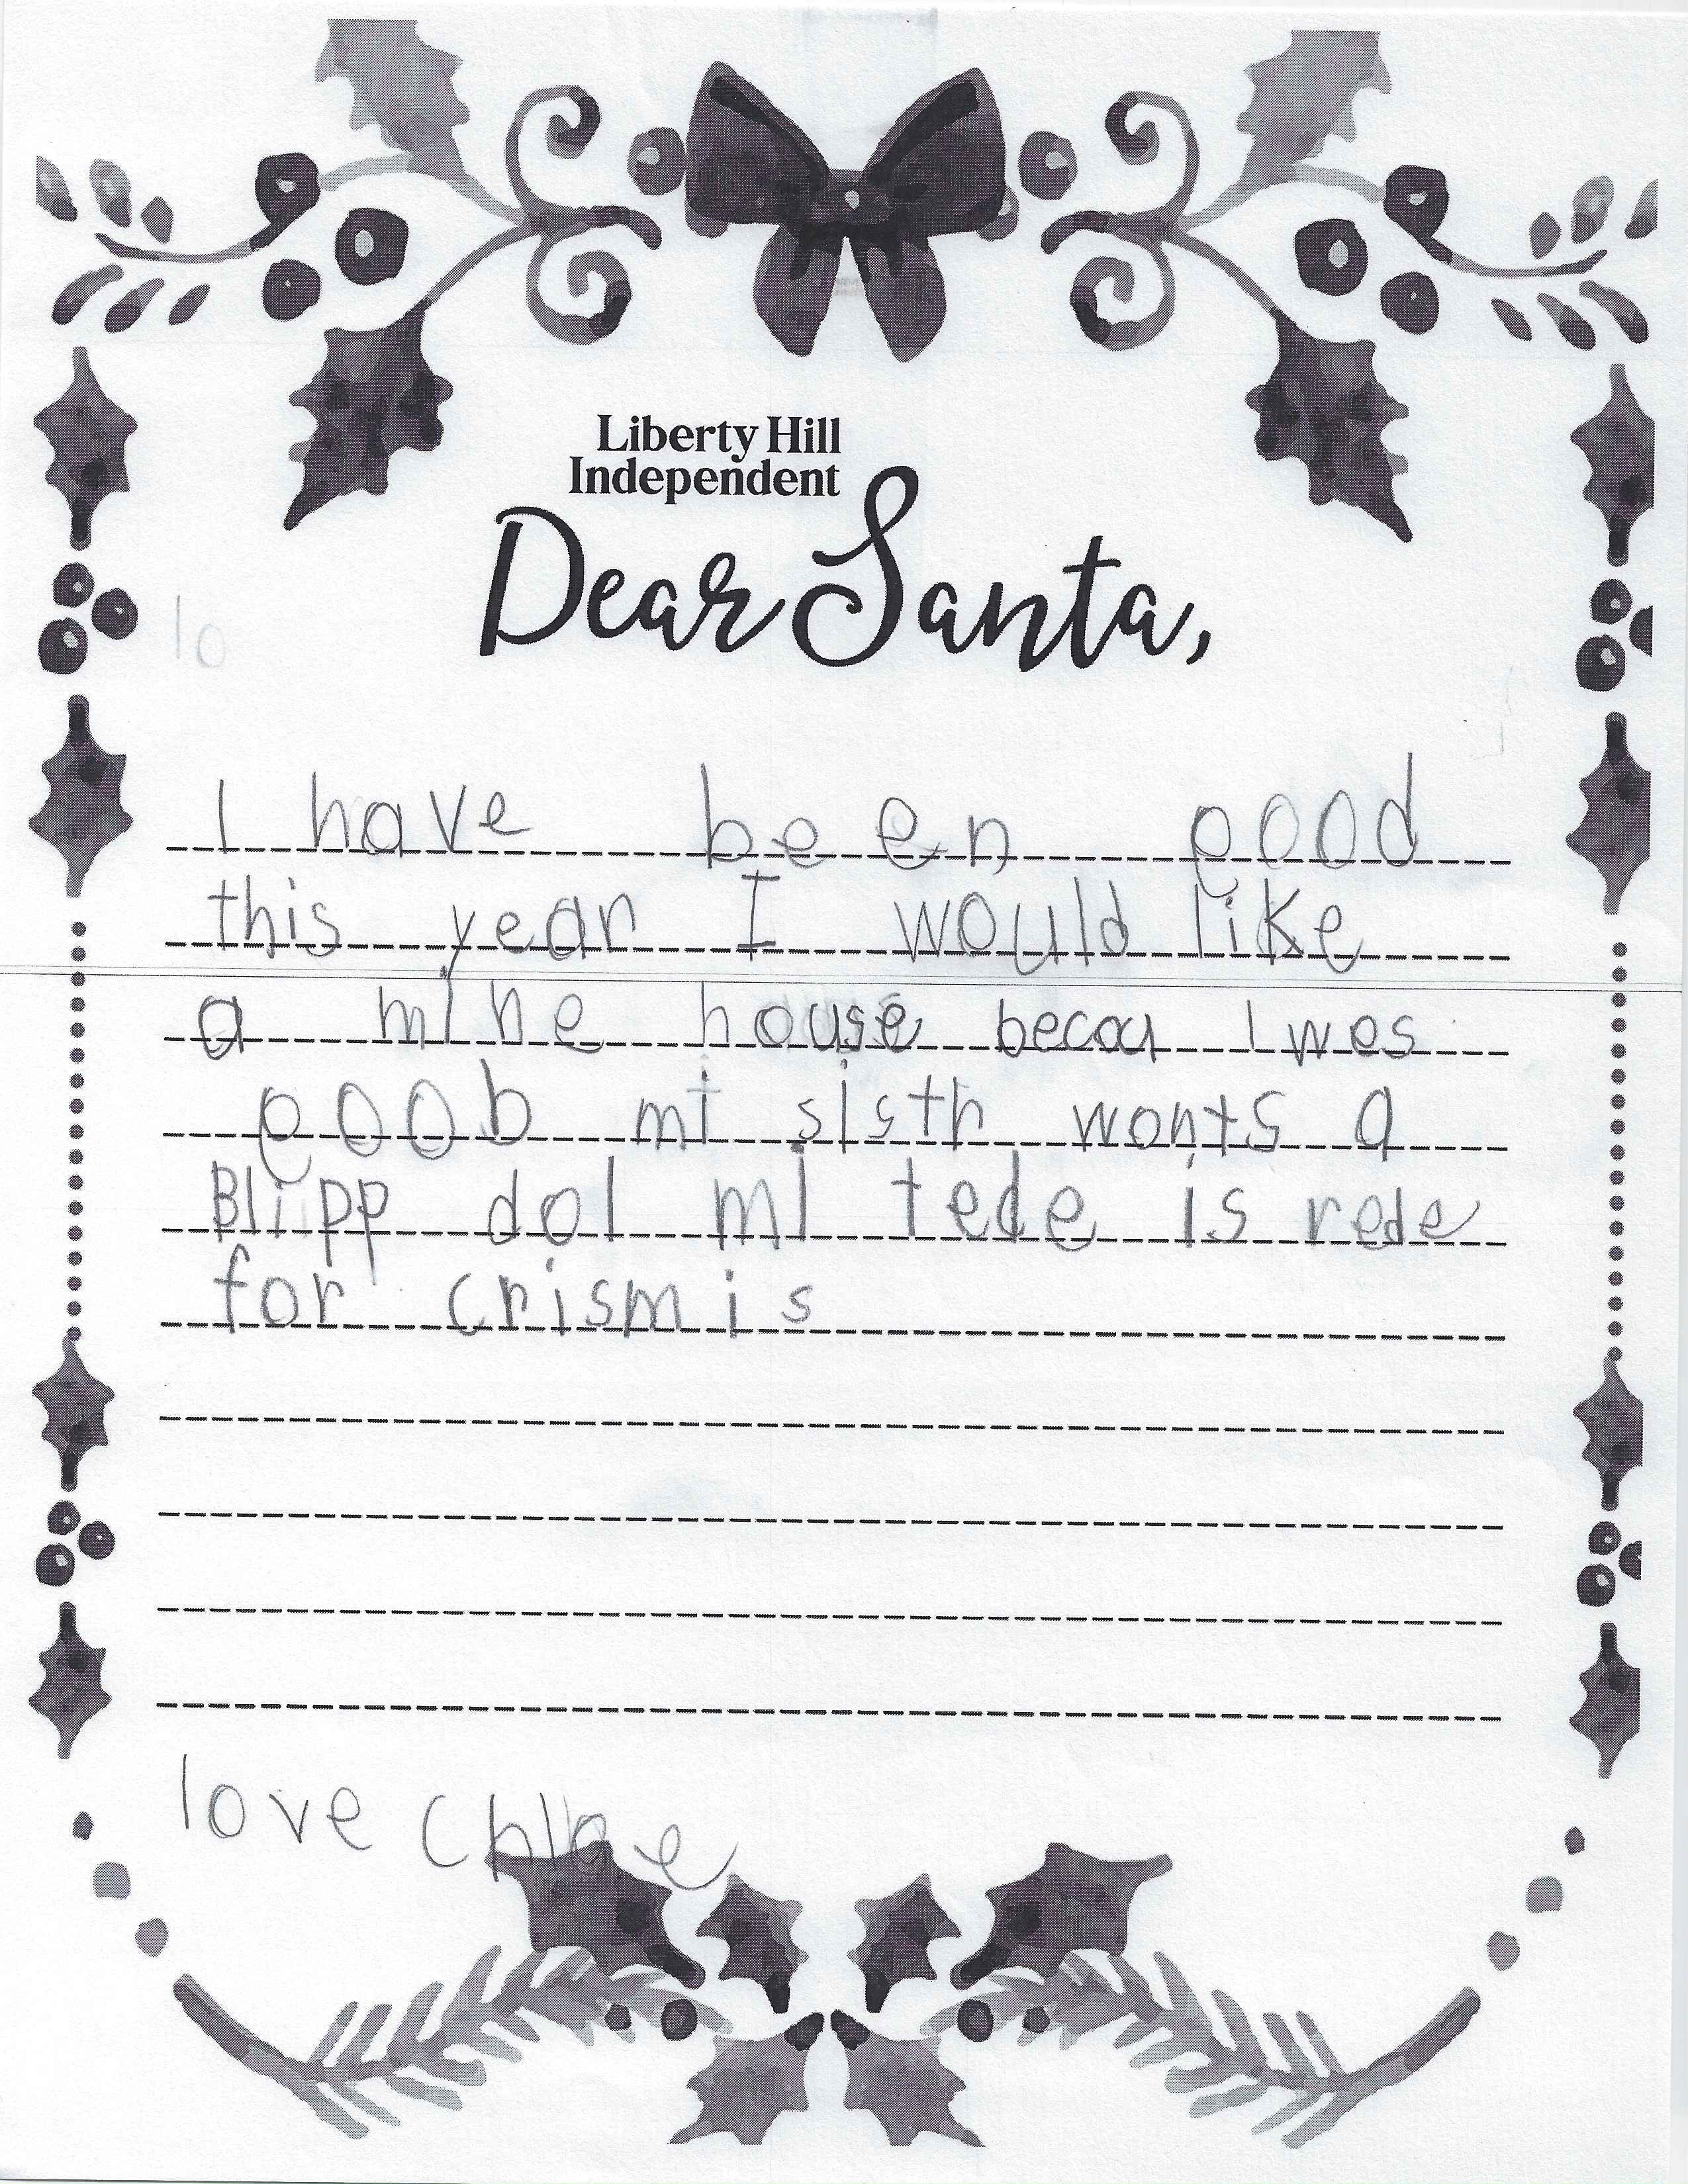 Liberty Hill
Independent
Dear Santa,
lo
I have been good
this year I would like
a mine house becau I wes
goob mi sisth wonts a
Blipp dol mi tede is rede
for crismis
love Chloe